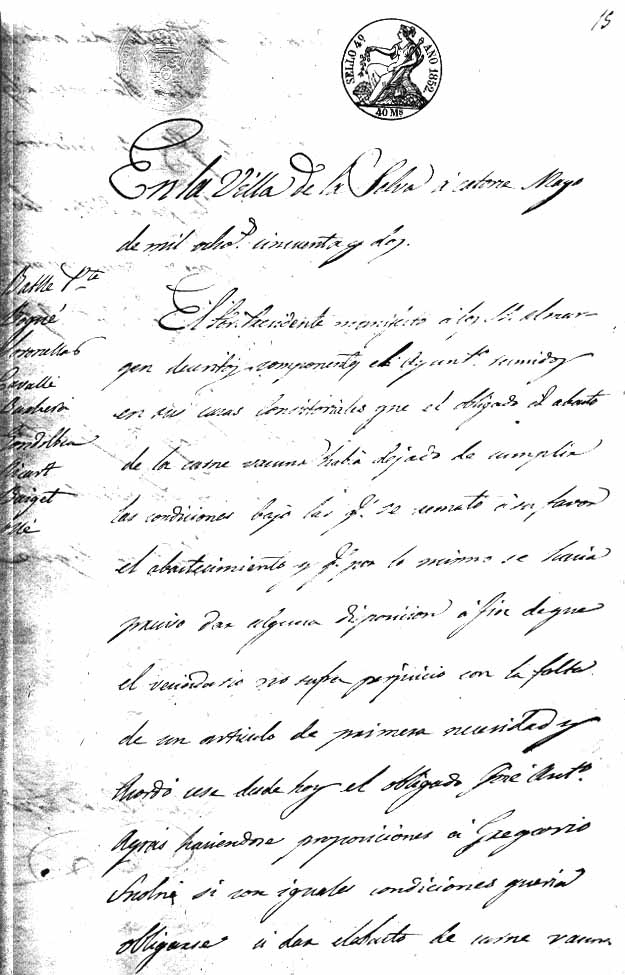 15
SELLO 4º AÑO 1852.
40 Ms
En la Villa de la Selva á catorse Mayo
de mil ochoᵗ. cincuenta y dos.
Batlle Pᵗᵉ
Cavallé
Barberá
Ricart
Baiget
El Sor. Presidente manifesto á los S. al mar-
gen descritos componentes el Ayuntº. reunidos
en sus casas Consistoriales que el obligado al abasto
de la carne vacuna habia dejado de cumplir
las condiciones bajo las q.ᵉ se remato á su favor
el abastecimiento y q.ᵉ por lo mismo se hacia
preciso dar alguna disposicion á fin de que
el vecindario no sufra perjuicio con la falta
de un articulo de primera necesidad y
acordó cese desde hoy el obligado José Antº.
Agrás haciendose proposiciones á Gregorio
si con iguales condiciones queria
obligarse á dar el abasto de carne vacuna